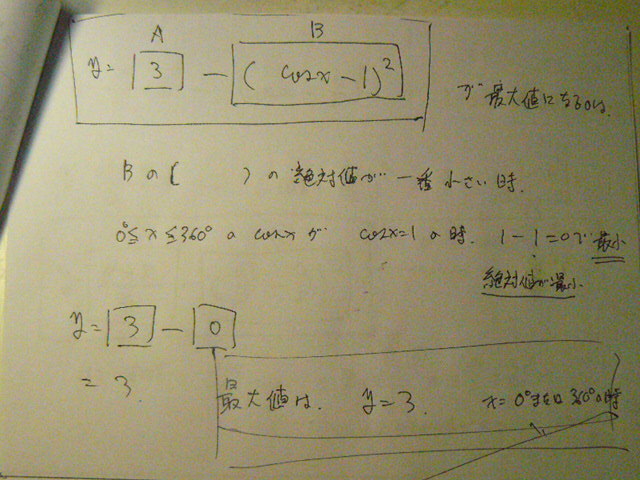 A B
y = 3 - (cosx-1)²
が最大値になるのは、
Bの( )の絶対値が一番小さい時、
0°≦x≦360°のcosxが cosx=1の時、1-1=0で最小
絶対値が最小
y = 3 - 0
= 3
最大値は、y=3. x=0°または360°の時